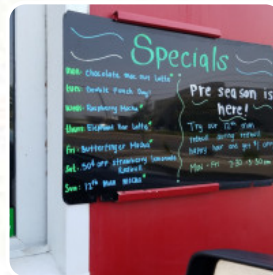 Specials
mon: Chocolate mac nut Latte
tues: Double Punch Days
weds: Raspberry Mocha
thurs: Elephant Ear Latte
Fri: Butterfinger Mocha
Sat: 50¢ off strawberry lemonade
Redbull
Sun: 12th man mocha
Pre season is
here!
Try our 12th man
redbull during
happy hour and get $1
MON - FRI